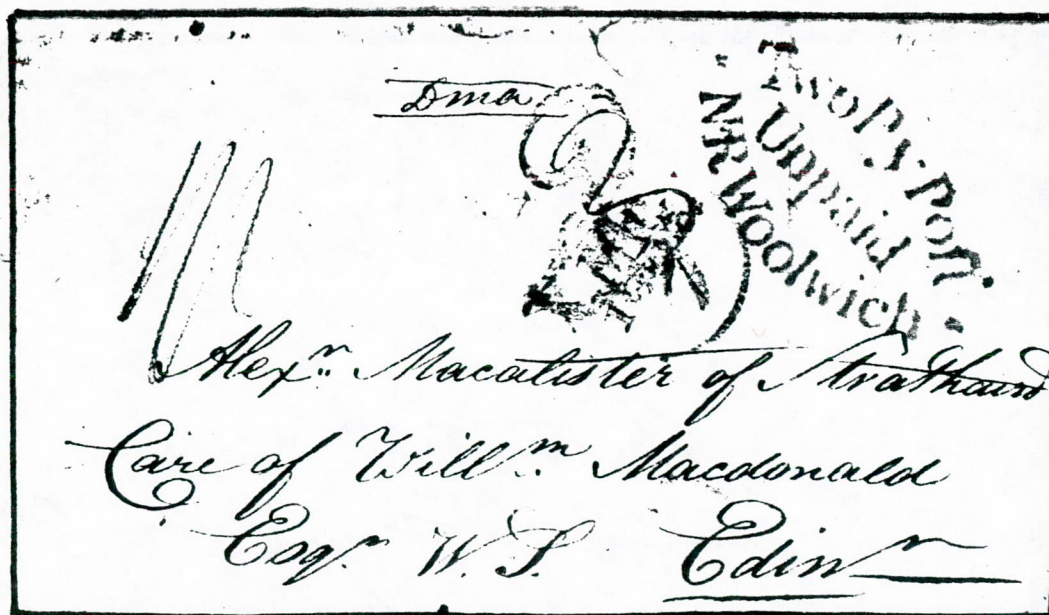 Two Py Post
Unpaid
NR Woolwich
Alexr. Macalister of Strathaird
Care of Willm Macdonald
Esqr. W. S. Edinr